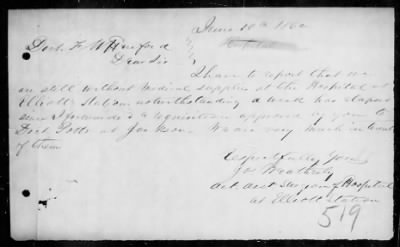 June 10th 186
Hospital
Doct. F. W
Dear Sir
I have to report that we
are still without Medical supplies at the Hospital at
Elliott Station notwithstanding a week has elapsed
since I forwarded a requisition approved by you to
Doct Potts at Jackson. We are very much in want
of them
Respectfully Yours
Jos Weatherly
Act asst Surgeon of Hospital
at Elliott Station
519